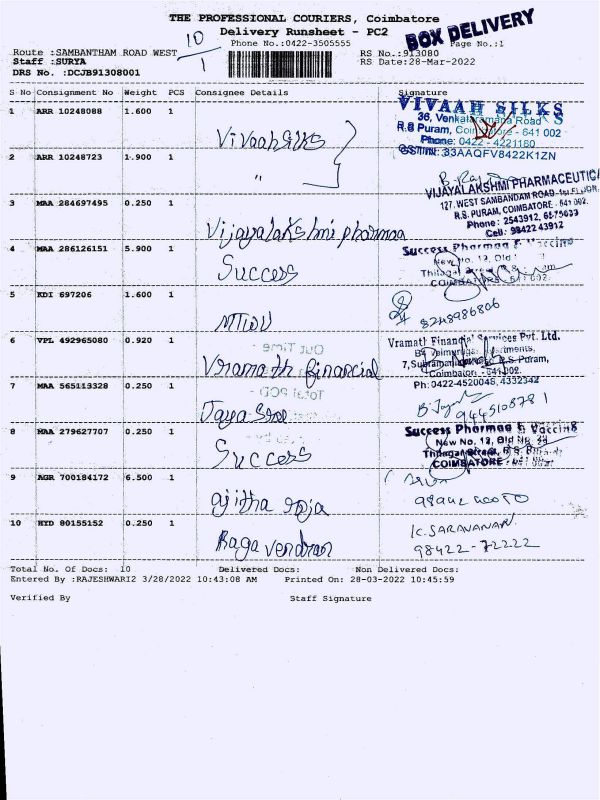 THE PROFESSIONAL COURIERS, Coimbatore
Delivery Runsheet - PC2
BOX DELIVERY
10
1
Phone No.:0422-3505555
Page No.:1
Route :SAMBANTHAM ROAD WEST
RS No.:913080
Staff :SURYA
RS Date:28-Mar-2022
DRS No. :DCJB91308001
S No Consignment No Weight PCS Consignee Details Signature
1 ARR 10248088 1.600 1
Vivaah silks
VIVAAH SILKS
36, Venkataramana Road
R.S Puram, Coimbatore - 641 002
Phone: 0422 - 4221180
GSTIN: 33AAQFV8422K1ZN
2 ARR 10248723 1.900 1
"
3 MAA 284697495 0.250 1
Vijayalakshmi pharmaa
VIJAYALAKSHMI PHARMACEUTICA
127, WEST SAMBANDAM ROAD, 1st FLOOR,
R.S. PURAM, COIMBATORE - 641 002.
Phone: 2543912,
Cell: 98422 43912
4 MAA 286126151 5.900 1
Success
Success Pharmaa & Vaccins
New No. 12, Old
COIMBATORE - 641 002.
5 KDI 697206 1.600 1
8248986806
6 VPL 492965080 0.920 1
Vramath financial
Vramath Financial Services Pvt. Ltd.
7, Subramaniam R.S. Puram,
Coimbatore - 641 002.
Ph: 0422-4520048, 4332342
Out Time
7 MAA 565113328 0.250 1
Total POD
Jaya
8 MAA 279627707 0.250 1
Success
Success Pharmaa & Vaccins
New No. 12, Old No.
COIMBATORE - 641 002.
9 AGR 700184172 6.500 1
ajitha raja
10 HYD 80155152 0.250 1
Ragavendran
K. SARAVANAN.
98422-72222
Total No. Of Docs: 10 Delivered Docs: Non Delivered Docs:
Entered By :RAJESHWARI2 3/28/2022 10:43:08 AM Printed On: 28-03-2022 10:45:59
Verified By Staff Signature